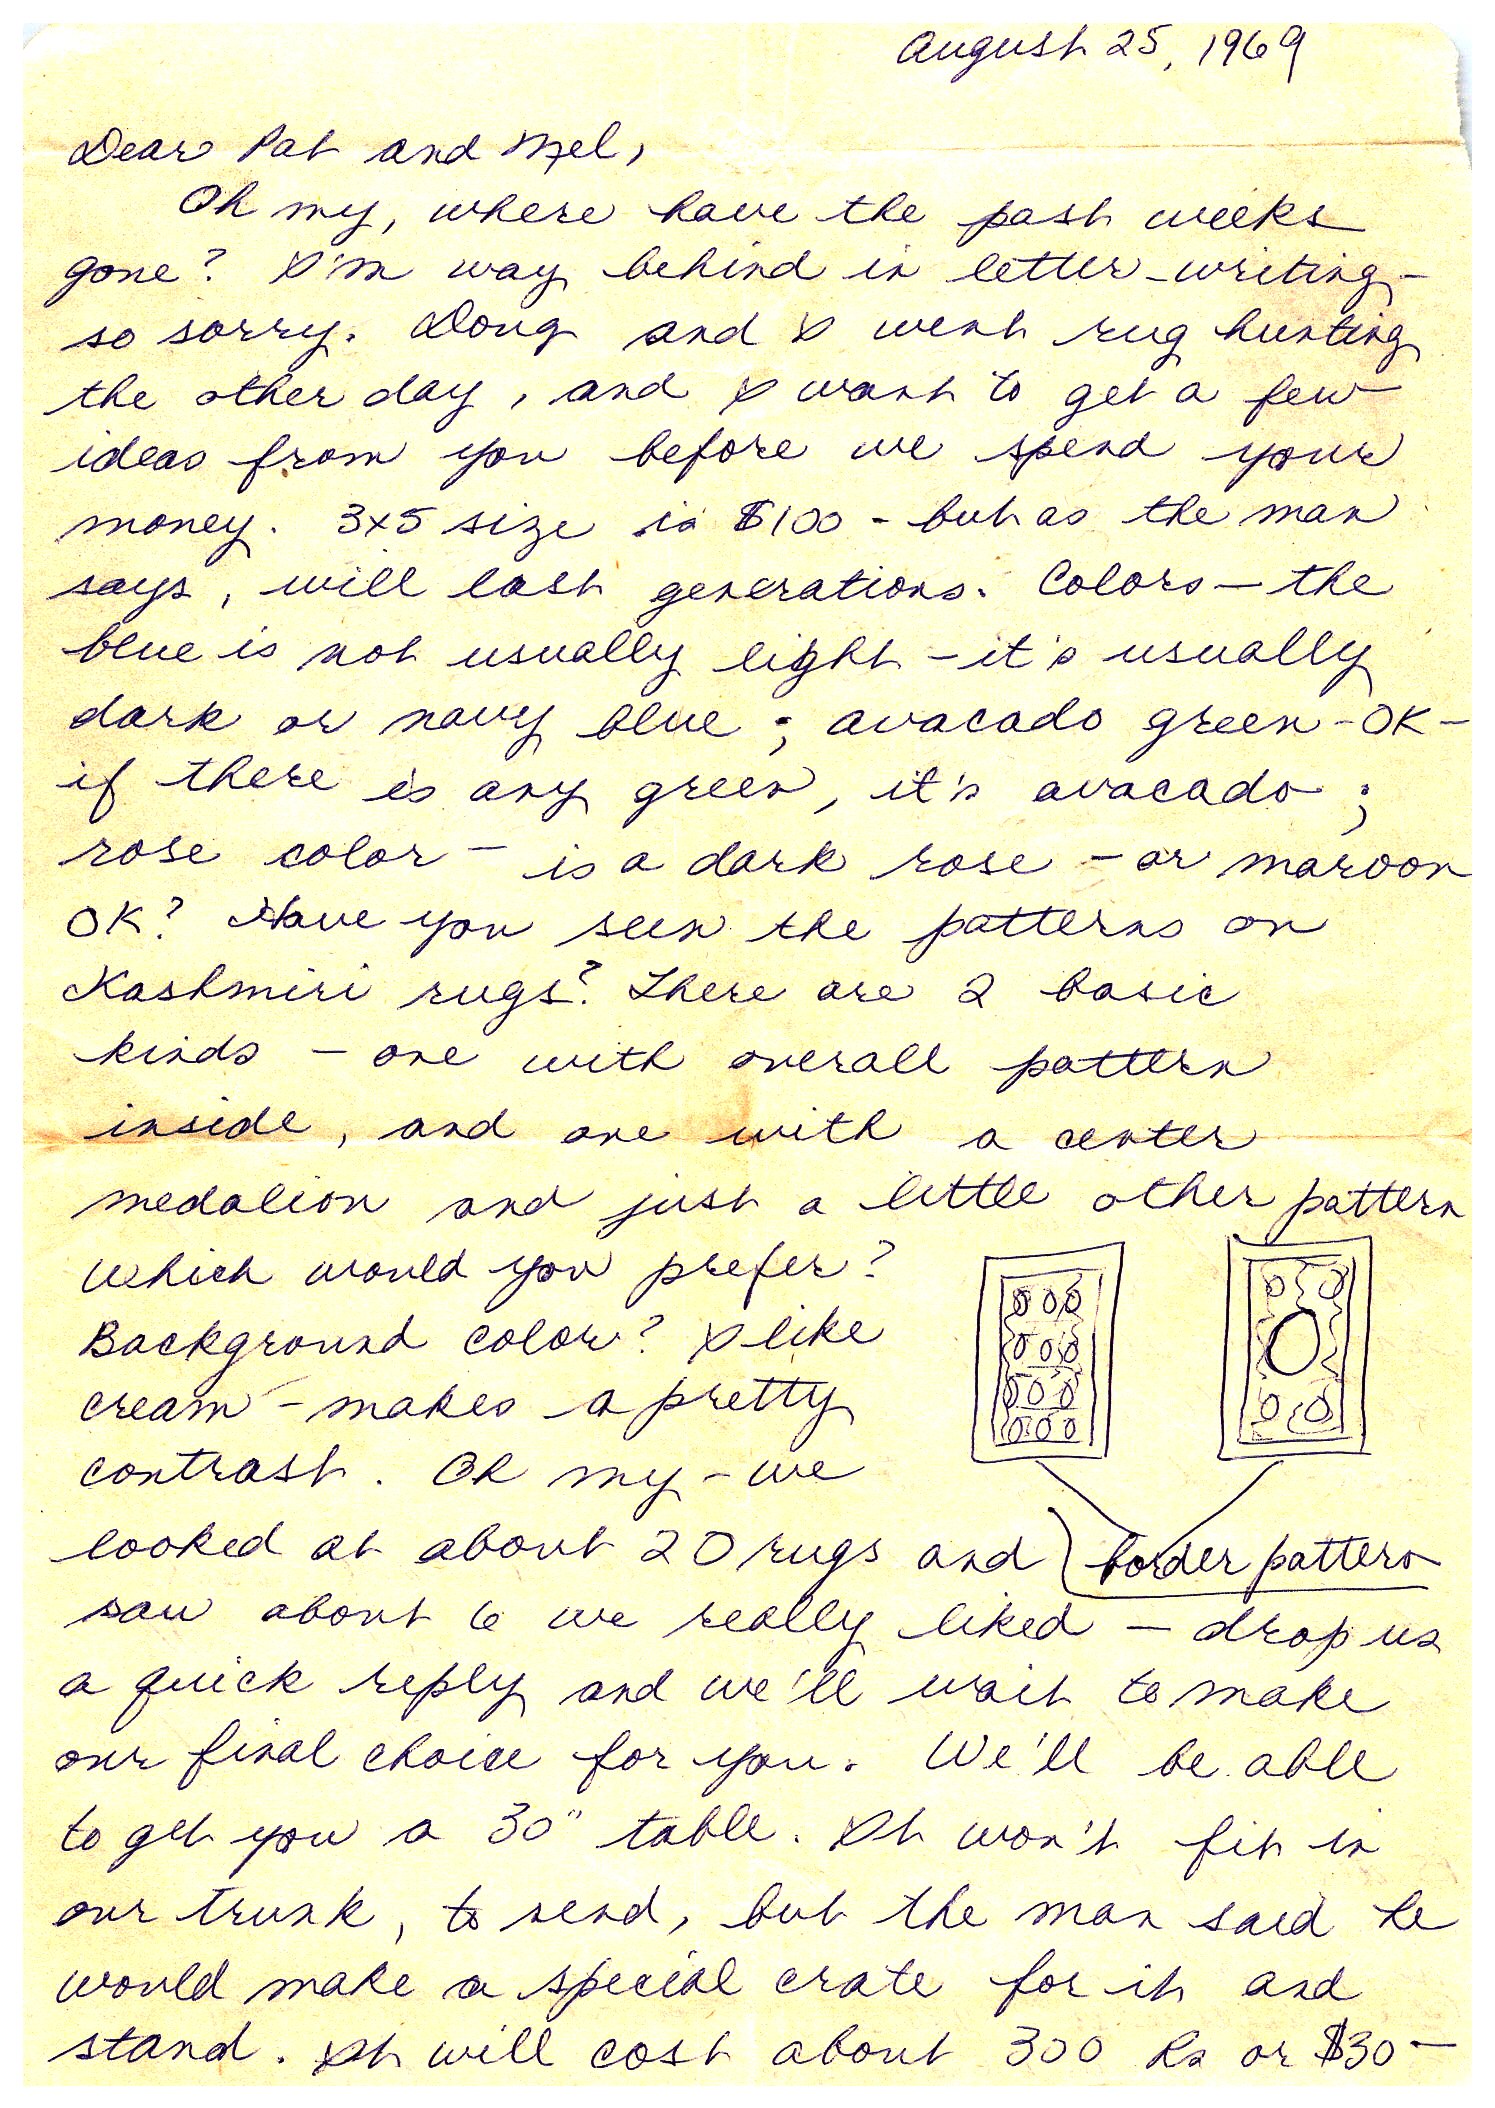 August 25, 1969
Dear Pat and Mel,
Oh my, where have the past weeks
gone? I'm way behind in letter-writing -
so sorry. Doug and I went rug hunting
the other day, and I want to get a few
ideas from you before we spend your
money. 3x5 size is $100 - but as the man
says, will last generations. Colors - the
blue is not usually light - it's usually
dark or navy blue; avacado green - OK -
if there is any green, it's avacado;
rose color - is a dark rose - or maroon
OK? Have you seen the patterns on
Kashmiri rugs? There are 2 basic
kinds - one with overall pattern
inside, and one with a center
medalion and just a little other pattern
Which would you prefer?
Background color? I like
cream - makes a pretty
contrast. Oh my - we
looked at about 20 rugs and
border pattern
saw about 6 we really liked - drop us
a quick reply and we'll wait to make
our final choice for you. We'll be able
to get you a 30" table. It won't fit in
our trunk, to send, but the man said he
would make a special crate for it and
stand. It will cost about 300 Rs or $30 -